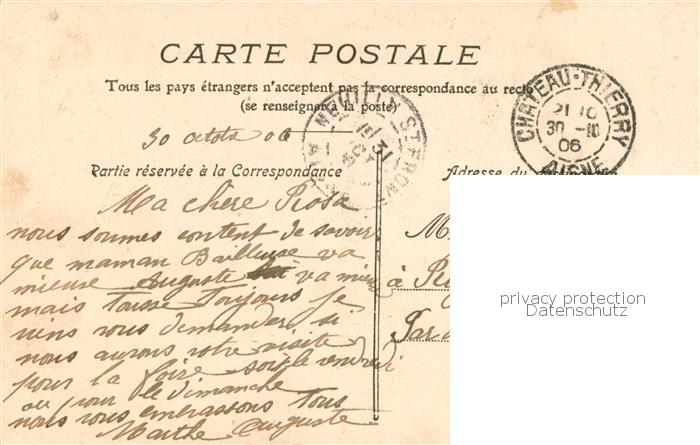 CARTE POSTALE
Tous les pays étrangers n'acceptent pas la correspondance au recto
(se renseigner à la poste)
CHATEAU-THIERRY
21 10
30 -10
06
AISNE
NEUILLY-ST-FRONT
30 octobre 06
Partie réservée à la Correspondance
Adresse du
Ma chère Rosa
nous sommes content de savoir
que maman Bailleuse va
mieuse Auguste va mieu
mais tousse toujours je
viens vous demander si
nous aurons votre visite
pour la foire soit le vendredi
ou pour le dimanche
nous vous embrassons tous
Marthe Auguste
M
à
Par
privacy protection
Datenschutz